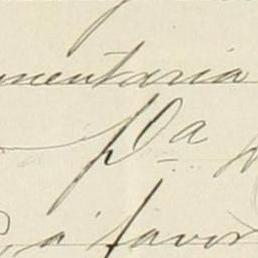 mentaria
Da
, a favor